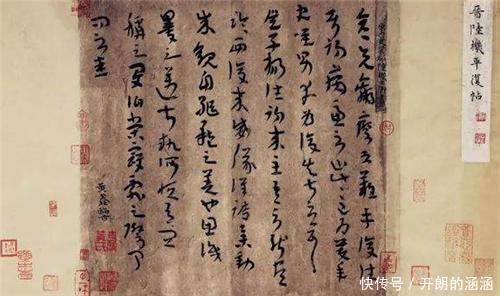 晉陸機平復帖
彦先羸瘵恐難平復往
屬初病慮不止此此已為慶承
使唯男幸為復失前憂耳
子楊往初來主吾不能盡
臨西復來威儀詳跱舉動
成觀自軀體之美也思識
量之邁前執所恒有宜
稱之夏伯榮寇亂之際聞
問不悉
快传号 / 开朗的涵涵